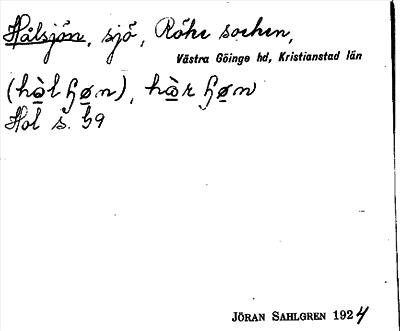 Hålsjön, sjö, Röke socken,
Västra Göinge hd, Kristianstad län
(hàlɧøn), hàrɧøn
Hol s. 59
JÖRAN SAHLGREN 1924